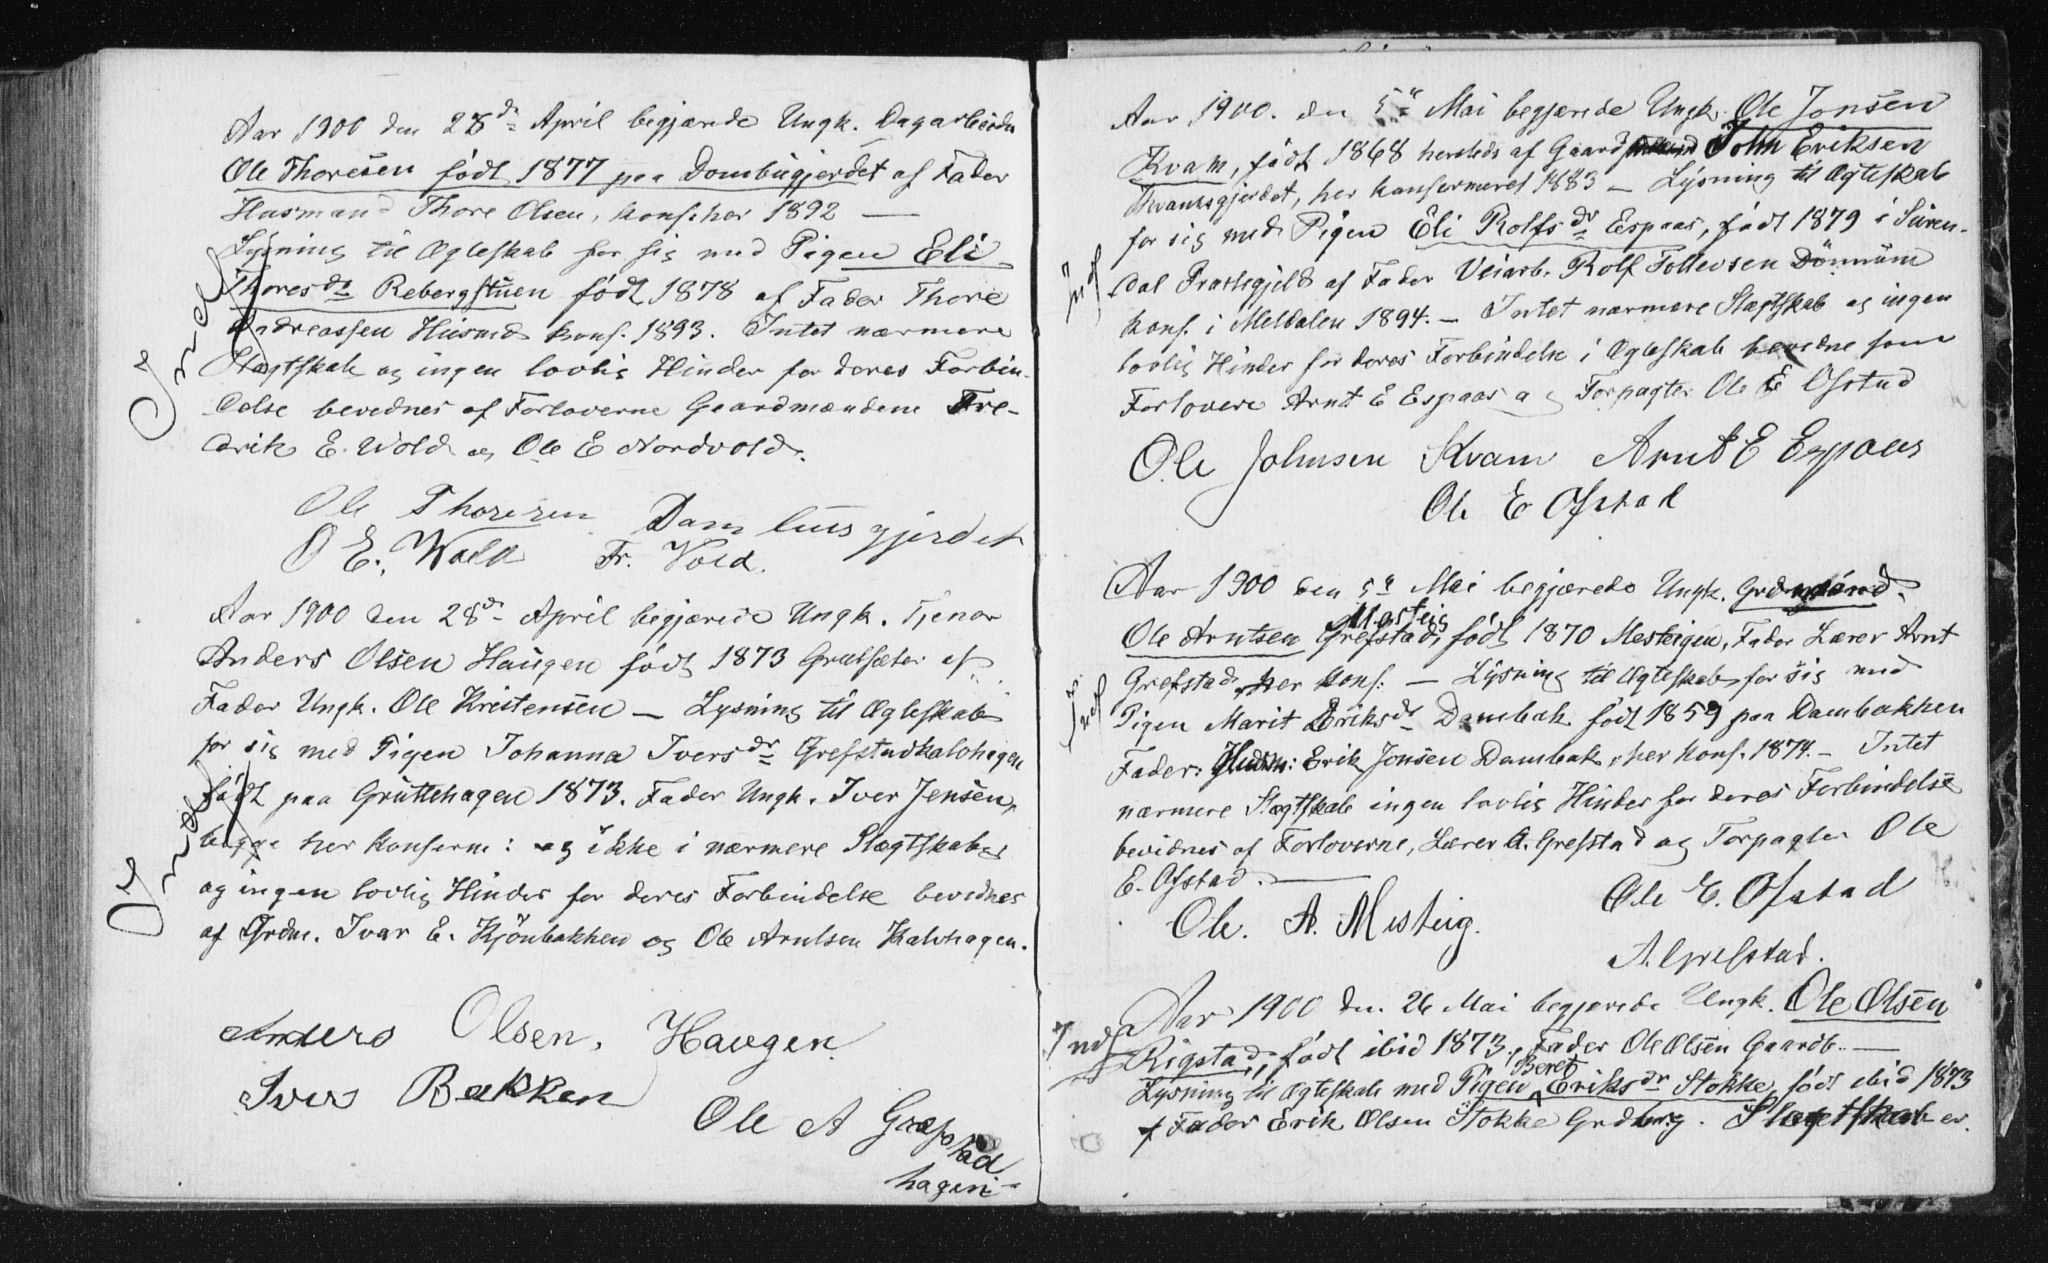 Aar 1900 den 28de April begjærede Ungk. Dagarbeider
Ole Thoresen født 1877 paa Dombugjerdet af Fader
Husmand Thore Olsen, konf. her 1892 —
Lysning til Ægteskab for sig med Pigen Eli
Thoresdr Rebergstuen født 1878 af Fader Thore
Andreassen Husmd konf. 1893. Intet nærmere
Slægtskab og ingen lovlig Hinder for deres Forbin-
delse bevidnes af Forloverne Gaardmændene Fre-
drik E. Wold og Ole E Nordvold.
Indf
Ole Thoresen Dambusgjerdet
O E. Wold Fr. Vold.
Aar 1900 den 28de April begjærede Ungk. Tjener
Anders Olsen Haugen født 1873 Grutsæter af
Fader Ungk. Ole Kristensen — Lysning til Ægteskab
for sig med Pigen Johanna Iversdr Grefstadkalvhagen
født paa Gruttehagen 1873. Fader Ungk. Iver Jensen,
begge her konferm: og ikke i nærmere Slægtskab
og ingen lovlig Hinder for deres Forbindelse bevidnes
af Grdm. Ivar E. Kjönbakken og Ole Arntsen Kalvhagen.
Indf
Anders Olsen. Haugen.
Iver Bakken
Ole A Græfstad
hagen
Aar 1900. den 5te Mai begjærede Ungk. Ole Jonsen
Kvam, født 1868 hersteds af Gaard John Eriksen
Kvamsgjerdet, her konfermeret 1883 — Lysning til Ægteskab
for sig med Pigen Eli Rolfsdr Espaas, født 1879 i Suren-
dal Præstegjeld af Fader Veiarb. Rolf Tollevsen Dönnüm
konf. i Meldalen 1894. — Intet nærmere Slægtskab og ingen
lovlig Hinder for deres Forbindelse i Ægteskab bevidne som
Forlovere Arnt E Espaas og Forpagter Ole E Ofstad
Indf
Ole Johnsen Kvam Arnt E Espaas
Ole E Ofstad
Aar 1900 den 5te Mai begjærede Ungk. Grdmand.
Mesteig
Ole Arntsen Grefstad, født 1870 Mesteigen, Fader Lærer Arnt
Grefstad, her konf: — Lysning til Ægteskab for sig med
Pigen Marit Eriksdr Dambak født 1859 paa Dambakken
Fader: Husm: Erik Jonsen Dambak, her konf. 1874. — Intet
nærmere Slægtskab ingen lovlig Hinder for deres Forbindelse
bevidnes af Forloverne, Lærer A. Grefstad og Forpagter Ole
E. Ofstad. —
Indf
Ole. A. Mesteig. Ole E. Ofstad
A. Grefstad.
Aar 1900 den 26 Mai begjærede Ungk. Ole Olsen
Indf Rigstad, født ibid 1873, Fader Ole Olsen Gaardb. —
Beret
Lysning til Ægteskab med Pigen Eriksdr Stokke, født ibid 1873
af Fader Erik Olsen Stokke Grdbrg. Slægtskab er.